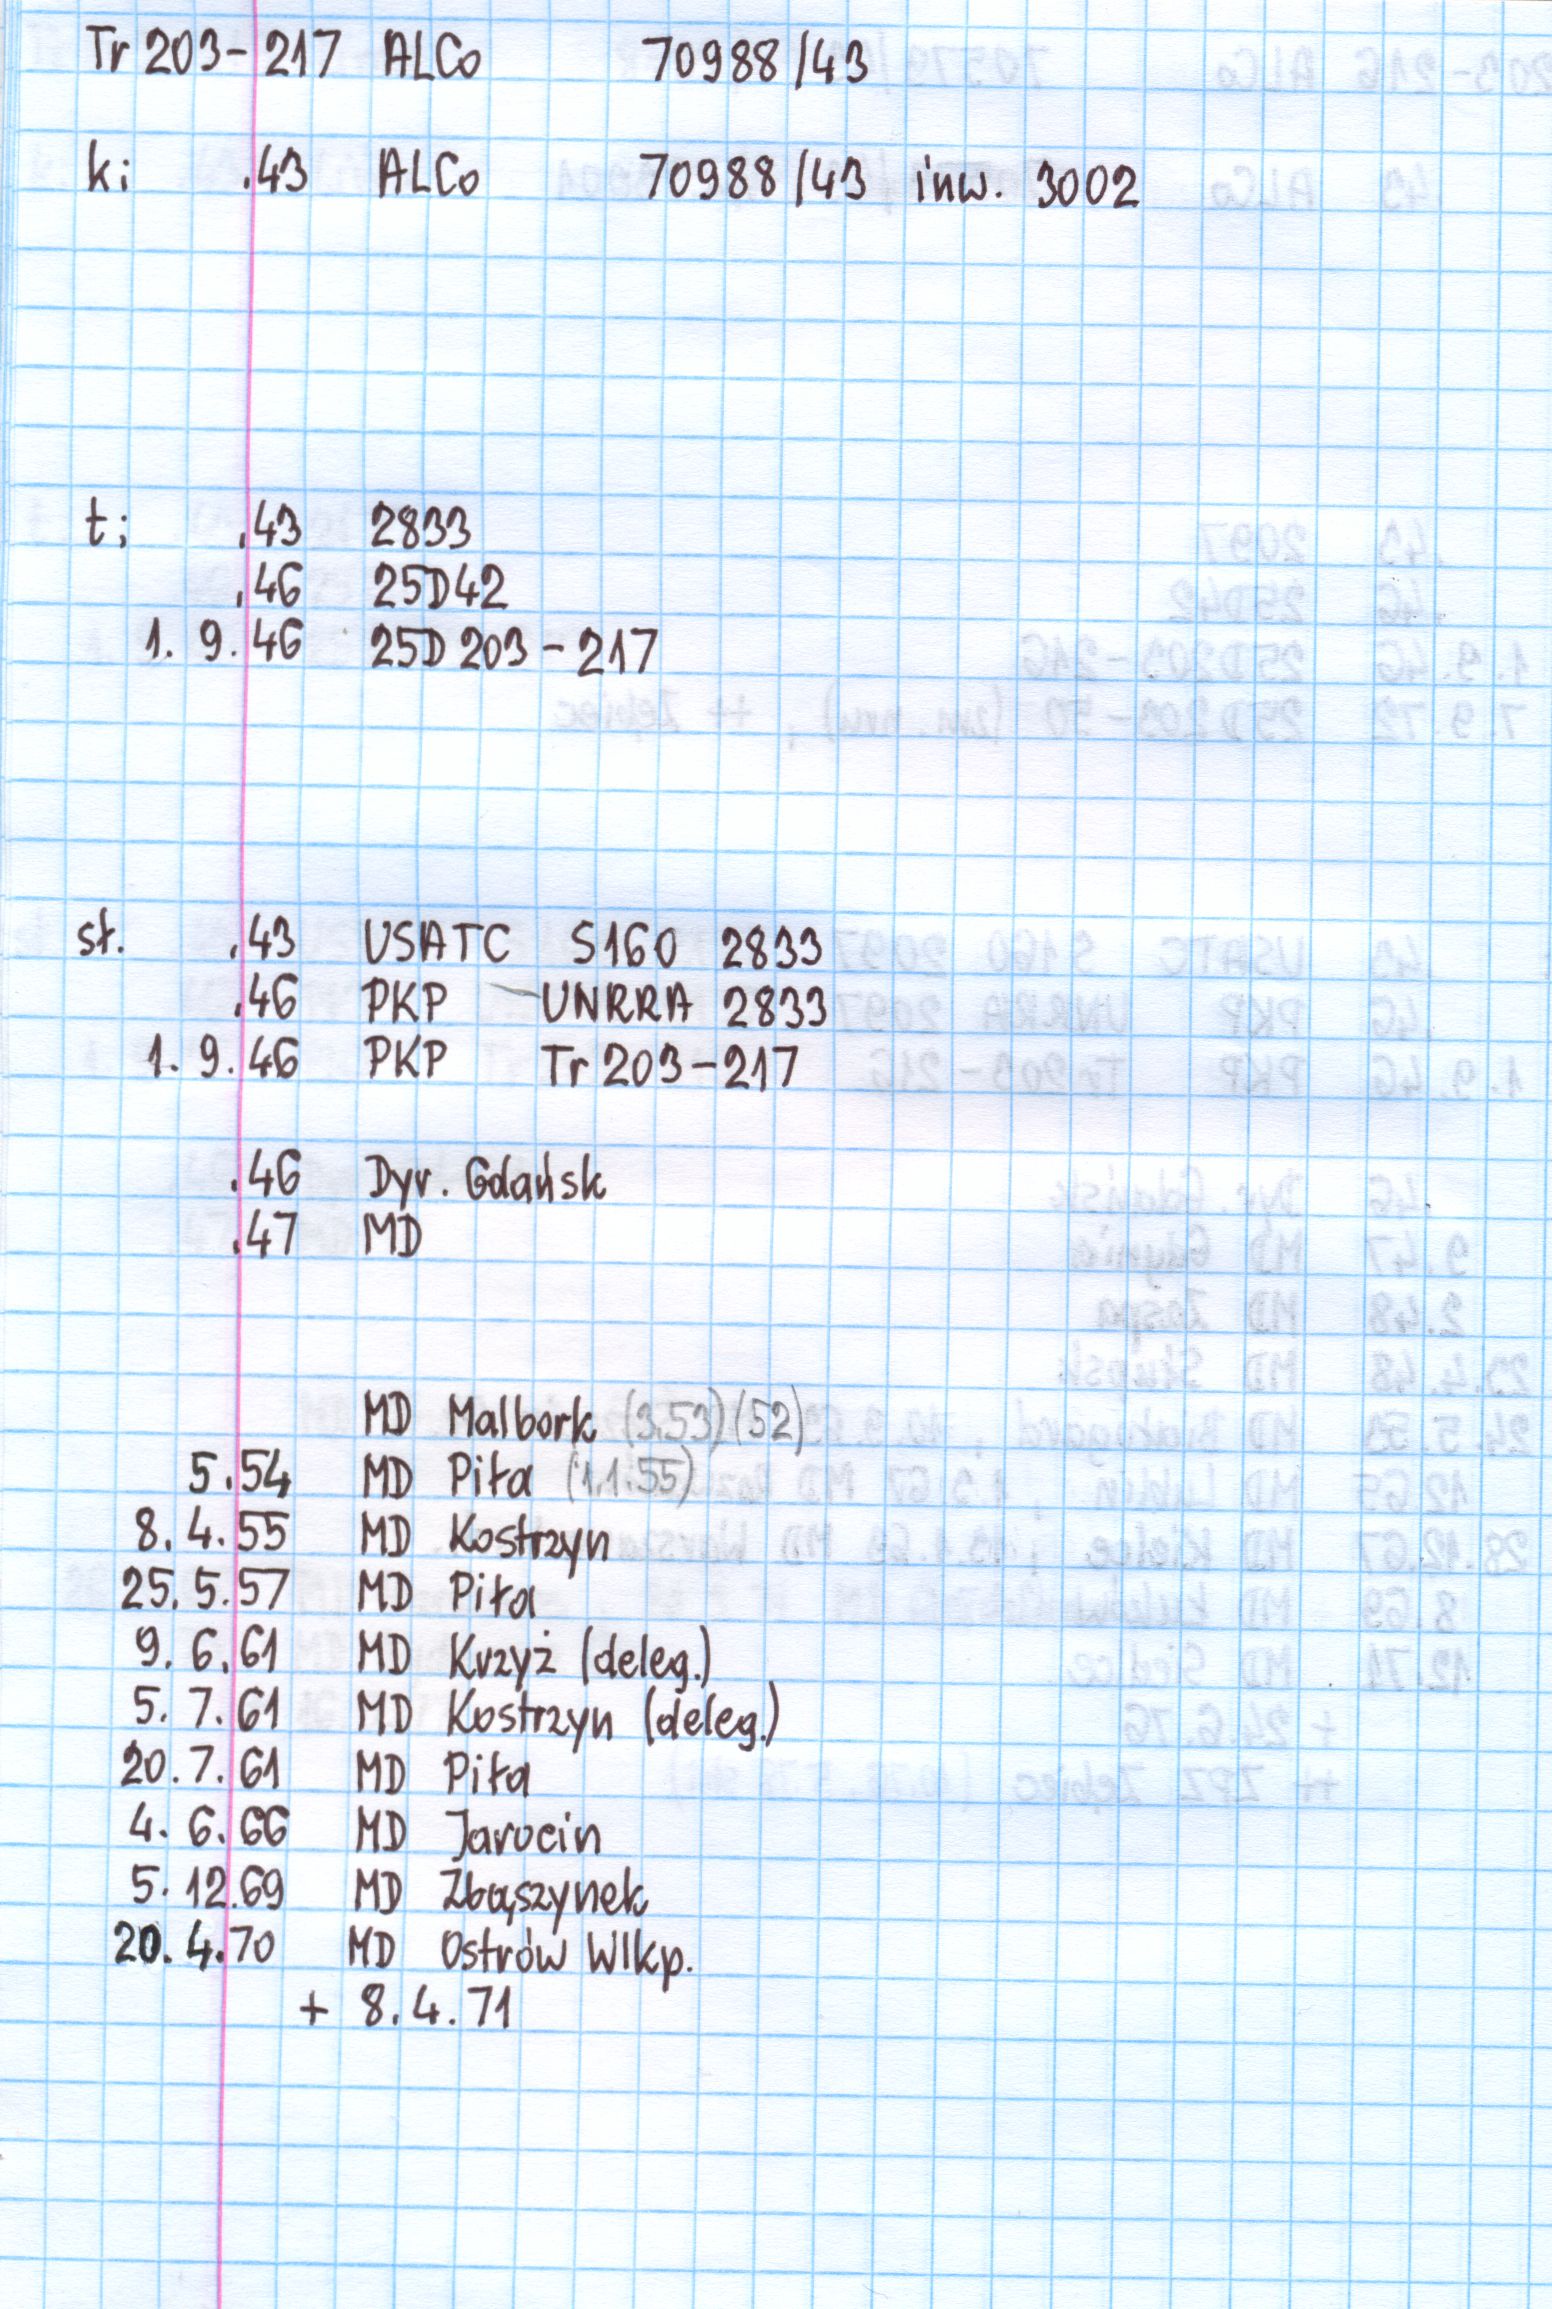 Tr 203-217 ALCo 70988/43
k: .43 ALCo 70988/43 inw. 3002
t: .43 2833
.46 25D42
1. 9. 46 25D 203-217
st. .43 USATC S160 2833
.46 PKP UNRRA 2833
1. 9. 46 PKP Tr 203-217
.46 Dyr. Gdańsk
.47 MD
MD Malbork (3.53) (52)
5.54 MD Piła (1.1.55)
8. 4. 55 MD Kostrzyn
25. 5. 57 MD Piła
9. 6. 61 MD Krzyż (deleg.)
5. 7. 61 MD Kostrzyn (deleg.)
20. 7. 61 MD Piła
4. 6. 66 MD Jarocin
5. 12. 69 MD Zbąszynek
20. 4. 70 MD Ostrów Wlkp.
+ 8. 4. 71